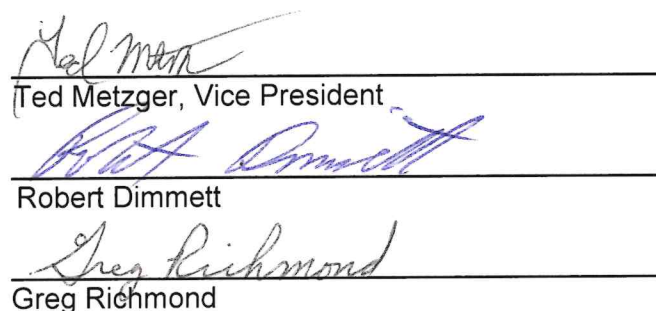 Ted Metzger, Vice President
Robert Dimmett
Robert Dimmett
Greg Richmond
Greg Richmond